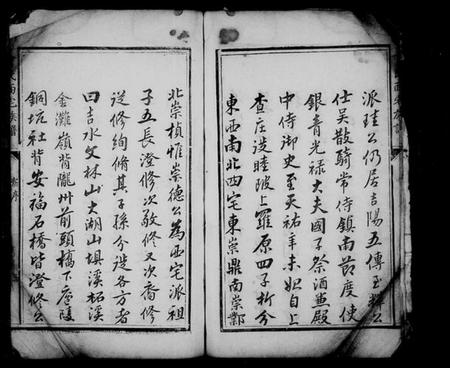 派珪公仍居吉陽五傳至輝公
仕吳散騎常侍鎮南節度使
銀青光祿大夫國子祭酒兼殿
中侍御史至天祐辛未妃自上
查庄淡睦陂上羅原四子析分
東西南北西宅東崇鼎南崇酆
北崇楨惟崇德公為西宅派祖
子五長澄修次敬修又次喬修
從修絢脩其子孫分徙各方者
曰吉水文林山大湖山塤溪柘溪
金灘嶺背隴州前頭橋下廬陵
銅坑社背安福石橋皆澄修公